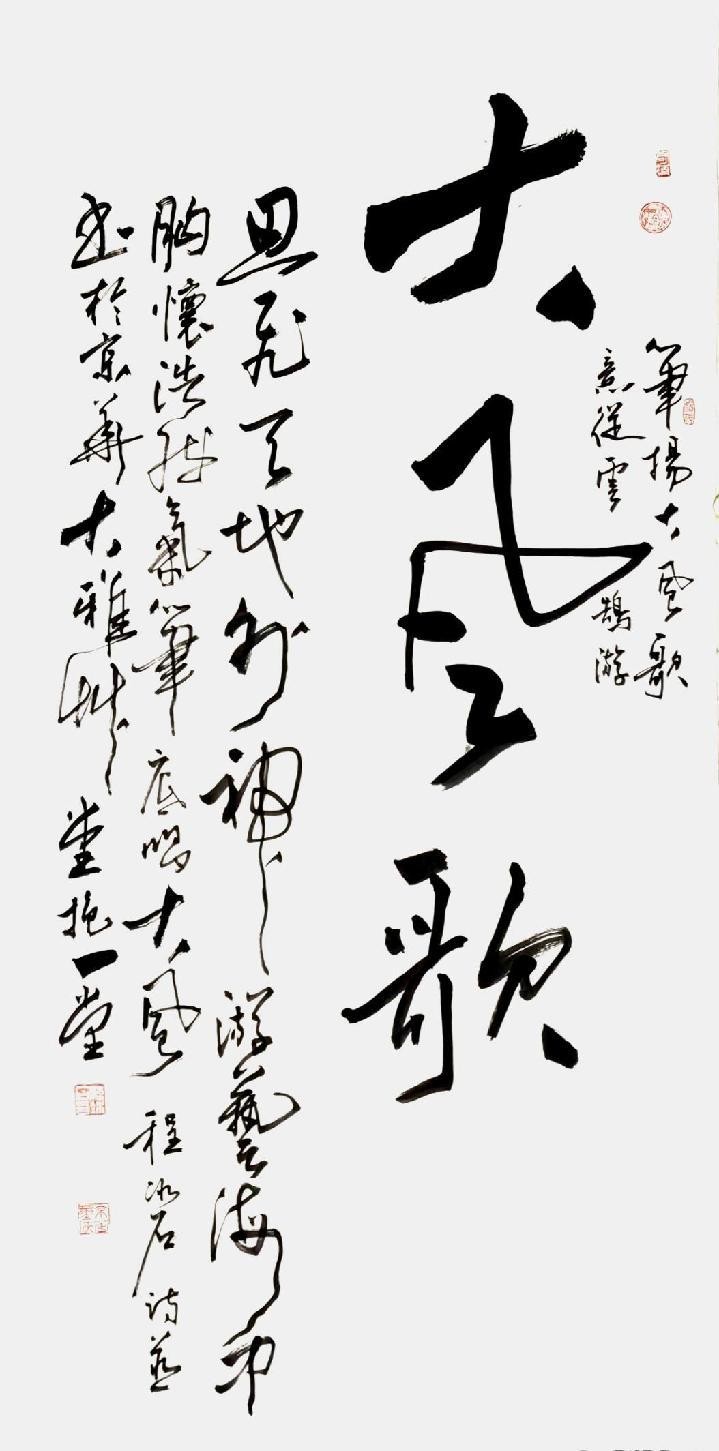 筆揚大風歌
意從雲鵠游
大風歌
思飛天地外神游藝海中
胸懷浩然氣筆底唱大風 程冰石詩並
书於京華大雅艸堂抱一堂